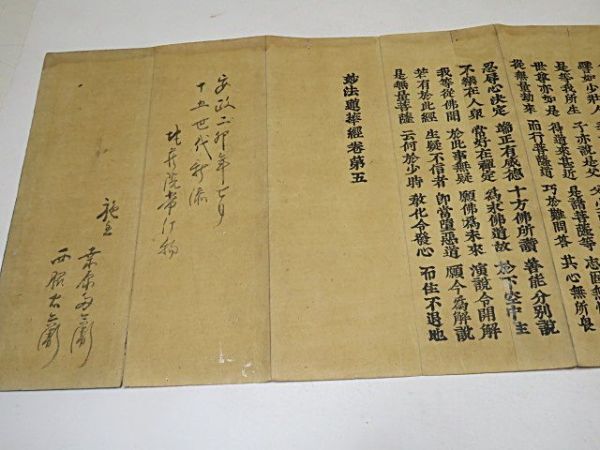 譬如少壯人
是等我所生 子亦說是父
世尊亦如是 得道來甚近 是諸菩薩等 志固無怯
從無量劫來 而行菩薩道 巧於難問答 其心無所畏
忍辱心決定 端正有威德 十方佛所讚 善能分別說
不樂在人眾 常好在禪定 為求佛道故 於下空中住
我等從佛聞 於此事無疑 願佛為未來 演說令開解
若有於此經 生疑不信者 即當墮惡道 願今為解說
是無量菩薩 云何於少時 教化令發心 而住不退地
妙法蓮華經卷第五
安政二卯年七月
十五世代新添
院常什物
施主